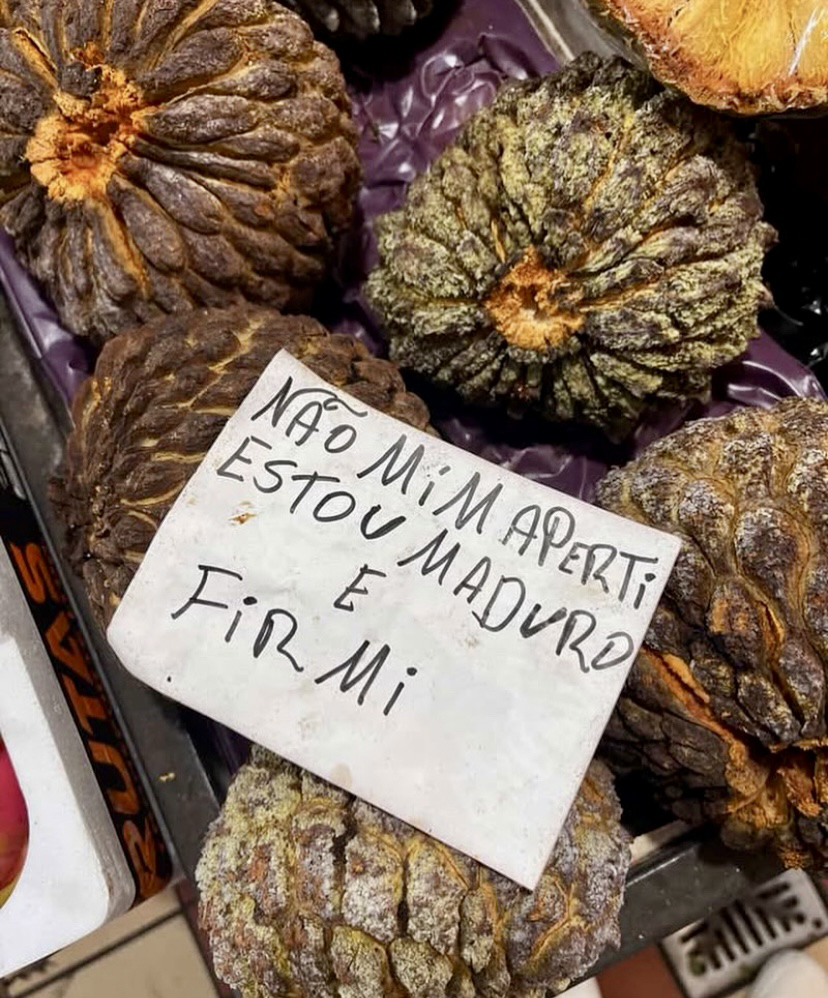 NÃO MiM APERTi
ESTOU MADURO
E
FiRMi
RUTAS